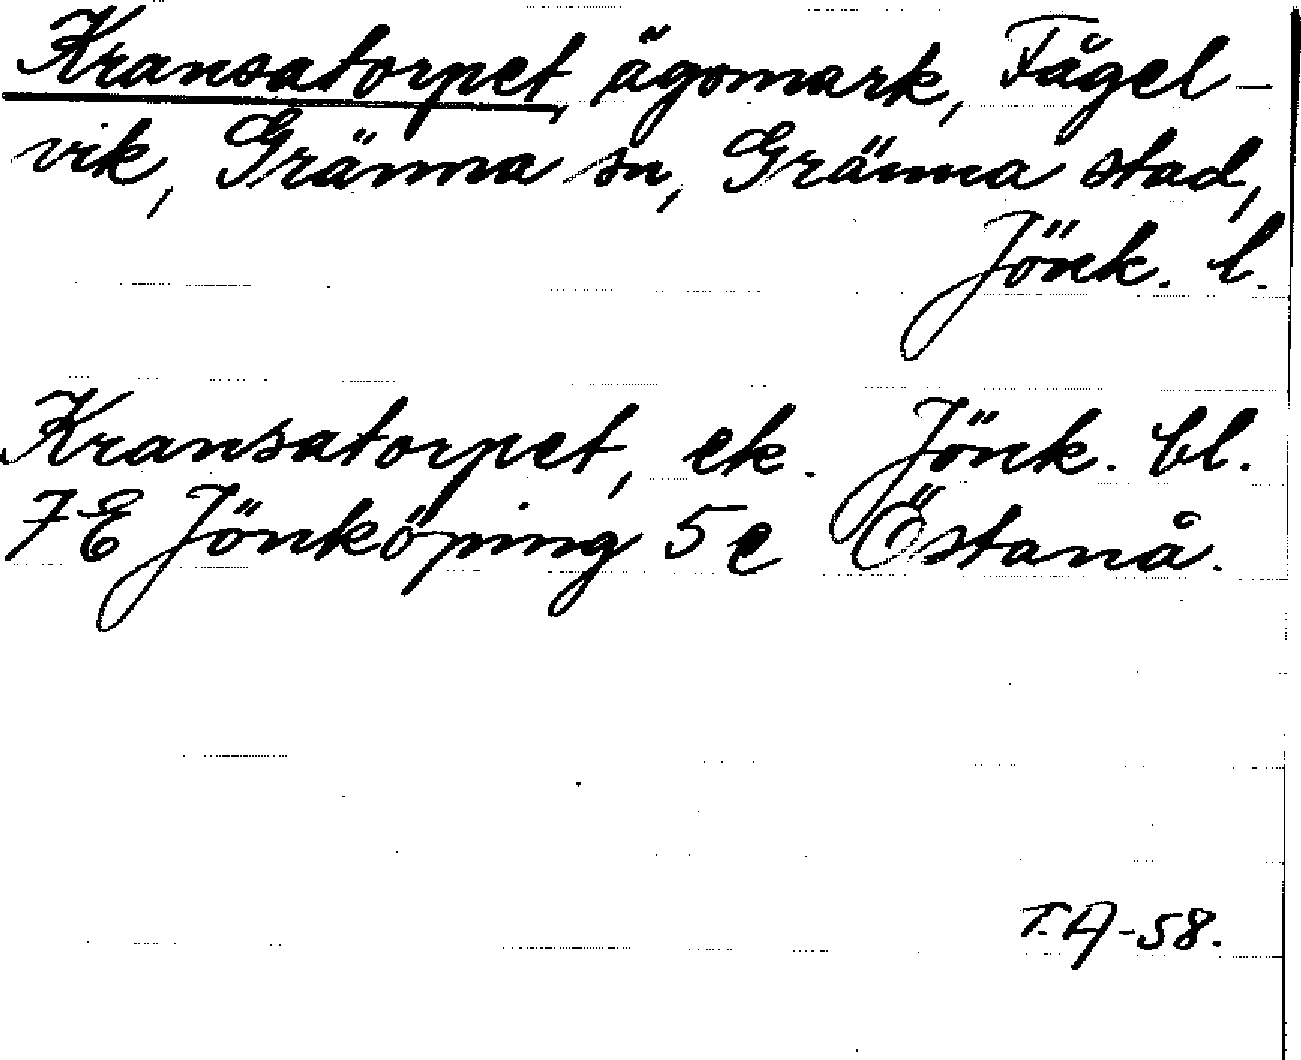 Kransatorpet, ägomark, Fågel-
vik, Gränna sn, Gränna stad,
Jönk. l.
Kransatorpet, ek. Jönk. bl.
7E Jönköping 5e Östanå.
T.A-58.